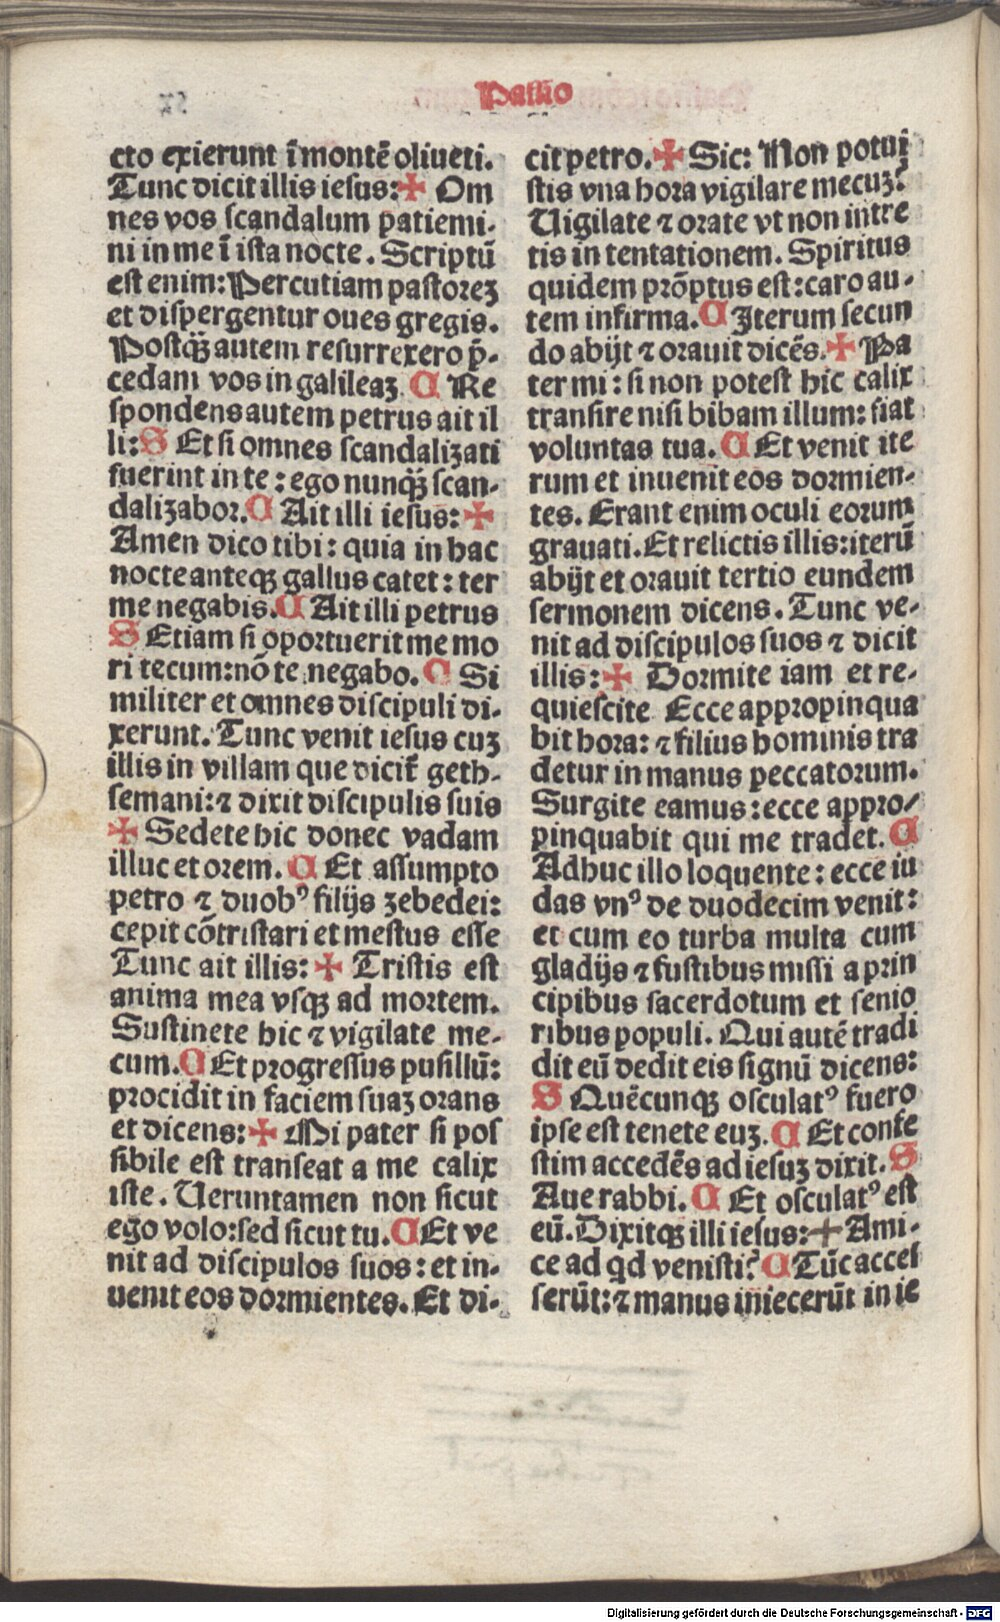 Passio
cto exierunt ī montē oliueti.
Tunc dicit illis iesus: ✠ Om
nes vos scandalum patiemi-
ni in me ī ista nocte. Scriptū
est enim: Percutiam pastorez
et dispergentur oues gregis.
Postqꝫ autem resurrexero p̄-
cedam vos in galileaz C Re
spondens autem petrus ait il
li: S Et si omnes scandalizati
fuerint in te: ego nunqꝫ scan-
dalizabor. C Ait illi iesus: ✠
Amen dico tibi: quia in hac
nocte anteqꝫ gallus catet: ter
me negabis. C Ait illi petrus
S Etiam si oportuerit me mo
ri tecum: nō te negabo. C Si
militer et omnes discipuli di-
xerunt. Tunc venit iesus cuz
illis in villam que dicit̄ geth-
semani: ⁊ dixit discipulis suis
✠ Sedete hic donec vadam
illuc et orem. C Et assumpto
petro ⁊ duobꝰ filijs zebedei:
cepit cōtristari et mestus esse
Tunc ait illis: ✠ Tristis est
anima mea vsqꝫ ad mortem.
Sustinete hic ⁊ vigilate me-
cum. C Et progressus pusillū:
procidit in faciem suaz orans
et dicens: ✠ Mi pater si pos
sibile est transeat a me calix
iste. Ueruntamen non sicut
ego volo: sed sicut tu. C Et ve
nit ad discipulos suos: et in-
uenit eos dormientes. Et di-
cit petro. ✠ Sic: Non potui
stis vna hora vigilare mecuz?
Uigilate ⁊ orate vt non intre
tis in tentationem. Spiritus
quidem prōptus est: caro au-
tem infirma. C Iterum secun
do abijt ⁊ orauit dicēs. ✠ Pa
ter mi: si non potest hic calix
transire nisi bibam illum: fiat
voluntas tua. C Et venit ite
rum et inuenit eos dormien-
tes. Erant enim oculi eorum
grauati. Et relictis illis: iterū
abijt et orauit tertio eundem
sermonem dicens. Tunc ve-
nit ad discipulos suos ⁊ dicit
illis: ✠ Dormite iam et re-
quiescite Ecce appropinqua
bit hora: ⁊ filius hominis tra
detur in manus peccatorum.
Surgite eamus: ecce appro/
pinquabit qui me tradet. C
Adhuc illo loquente: ecce iu
das vnꝰ de duodecim venit:
et cum eo turba multa cum
gladijs ⁊ fustibus missi a prin
cipibus sacerdotum et senio
ribus populi. Qui autē tradi
dit eū dedit eis signū dicens:
S Quēcunqꝫ osculatꝰ fuero
ipse est tenete euz. C Et confe
stim accedēs ad iesuz dixit. S
Aue rabbi. C Et osculatꝰ est
eū. Dixitqꝫ illi iesus: ✠ Ami-
ce ad qd venisti? C Tūc acces
serūt: ⁊ manus iniecerūt in ie
Digitalisierung gefördert durch die Deutsche Forschungsgemeinschaft - DFG